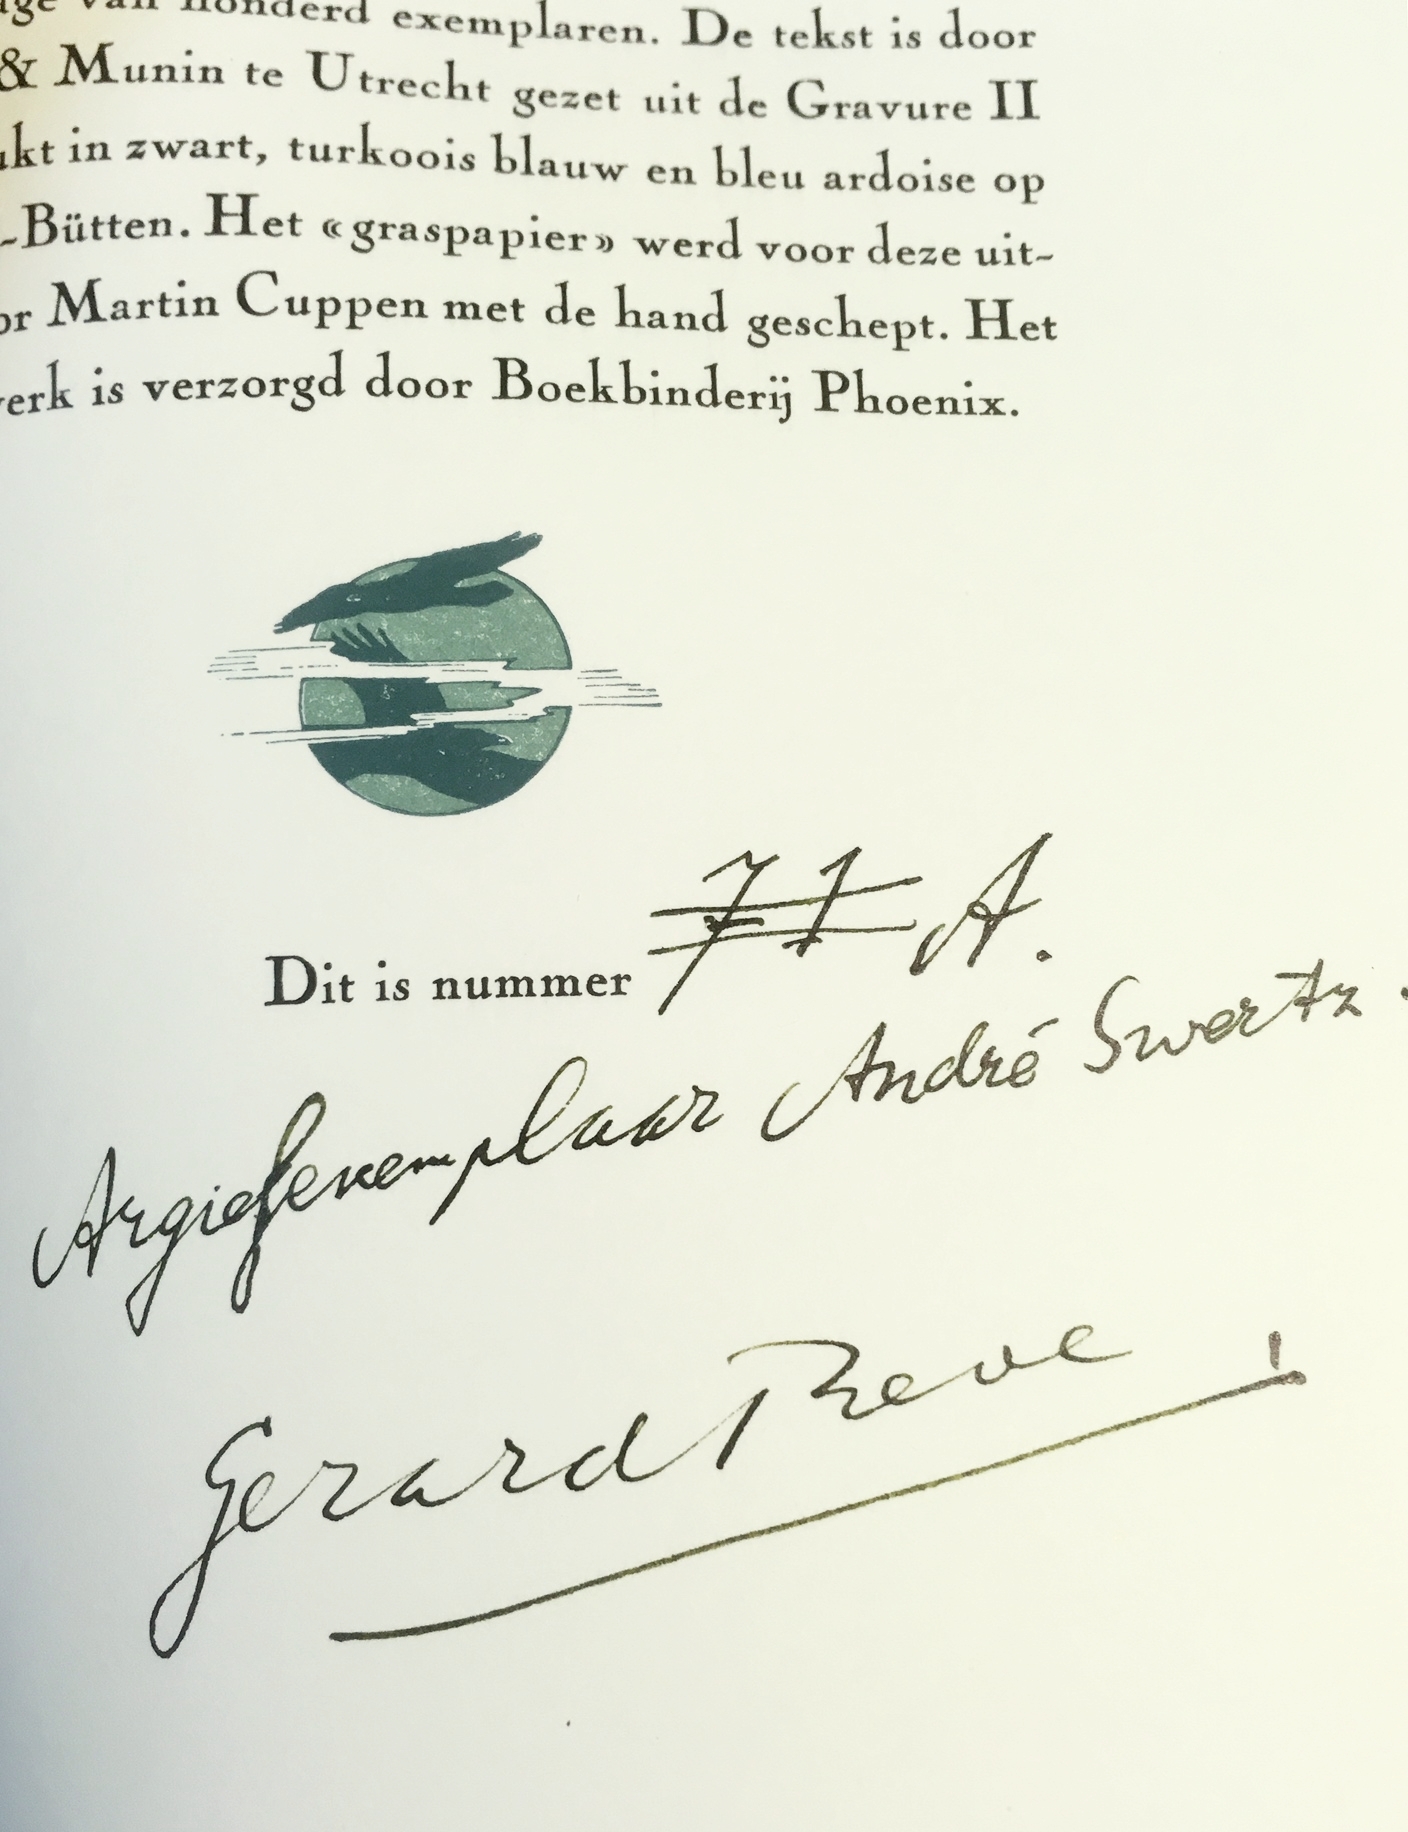 van honderd exemplaren. De tekst is door
& Munin te Utrecht gezet uit de Gravure II
in zwart, turkoois blauw en bleu ardoise op
-Bütten. Het «graspapier» werd voor deze uit-
Martin Cuppen met de hand geschept. Het
is verzorgd door Boekbinderij Phoenix.
Dit is nummer 71 A.
Argiefexemplaar André Swertz.
Gerard Reve